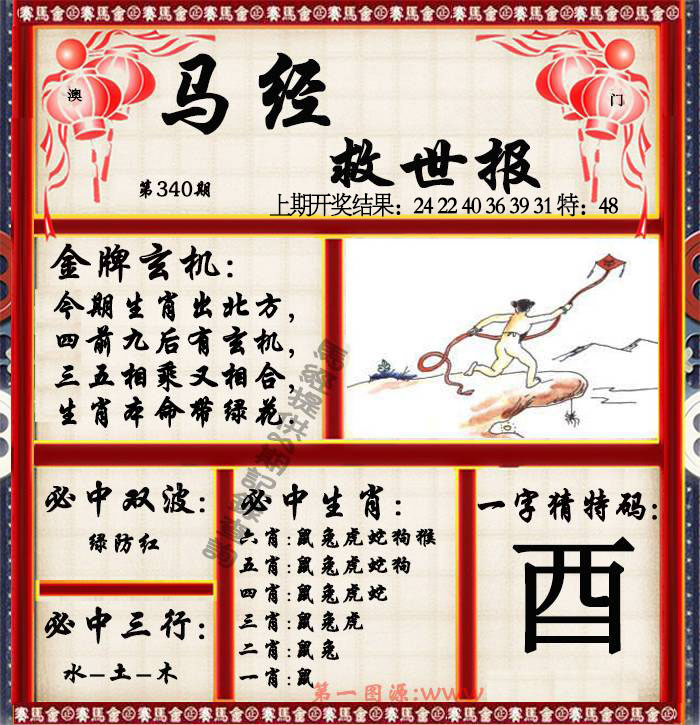 賽馬會 賽馬會 賽馬會 賽馬會 賽馬會 賽馬會 賽馬會 賽馬會
澳
门
马经
救世报
第340期
上期开奖结果：24 22 40 36 39 31 特：48
金牌玄机：
今期生肖出北方，
四前九后有玄机，
三五相乘又相合，
生肖本命带绿花.
必中双波：
绿防红
必中三行：
水－土－木
必中生肖：
六肖：鼠兔虎蛇狗猴
五肖：鼠兔虎蛇狗
四肖：鼠兔虎蛇
三肖：鼠兔虎
二肖：鼠兔
一肖：鼠
一字猜特码：
酉
第一图源:www